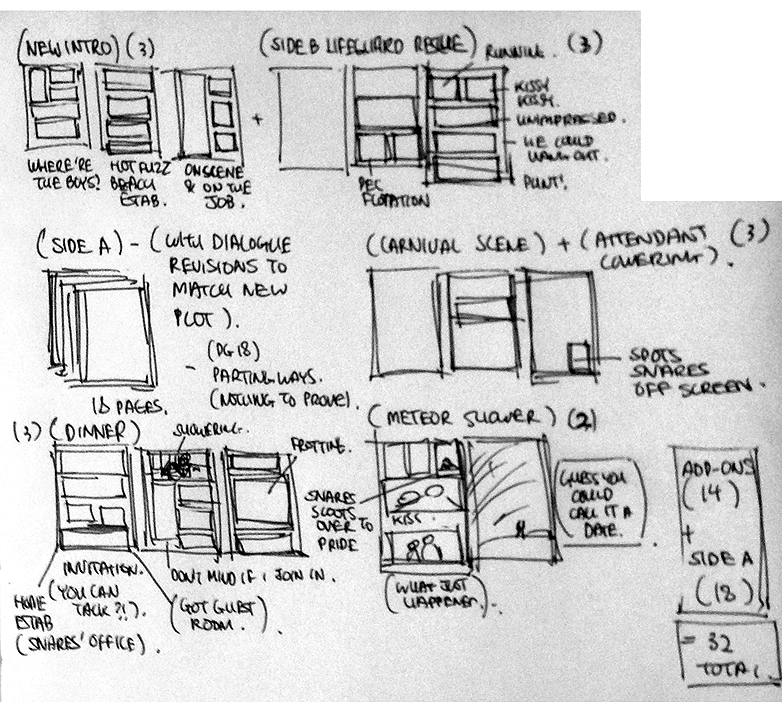 (NEW INTRO) (3)
+
(SIDE B LIFEGUARD RESCUE)
RUNNING.
(3)
KISSY
KISSY.
UNIMPRESSED.
WE COULD
HANG OUT.
PUNT!
WHERE'RE
THE BOYS?
HOT FUZZ
BEACH
ESTAB.
ON SCENE
& ON THE
JOB.
PEC
FLOTATION
(SIDE A) - (WITH DIALOGUE
REVISIONS TO
MATCH NEW
PLOT).
- (PG 18)
PARTING WAYS.
(NOTHING TO PROVE).
18 PAGES.
(CARNIVAL SCENE) + (ATTENDANT
COVERING).
(3)
SPOTS
SNARES
OFF SCREEN.
(3) (DINNER)
SHOWERING.
FROTTING.
INVITATION.
(YOU CAN
TALK?!).
HOME
ESTAB
(SNARES' OFFICE).
(GOT GUEST
ROOM.).
DON'T MIND IF I JOIN IN.
(METEOR SHOWER) (2)
SNARES
SCOOTS
OVER TO
PRIDE
KISS.
(WHAT JUST
HAPPENED.).
(GUESS YOU
COULD
CALL IT A
DATE.
).
ADD-ONS
(14)
+
SIDE A
(18)
= 32
TOTAL.